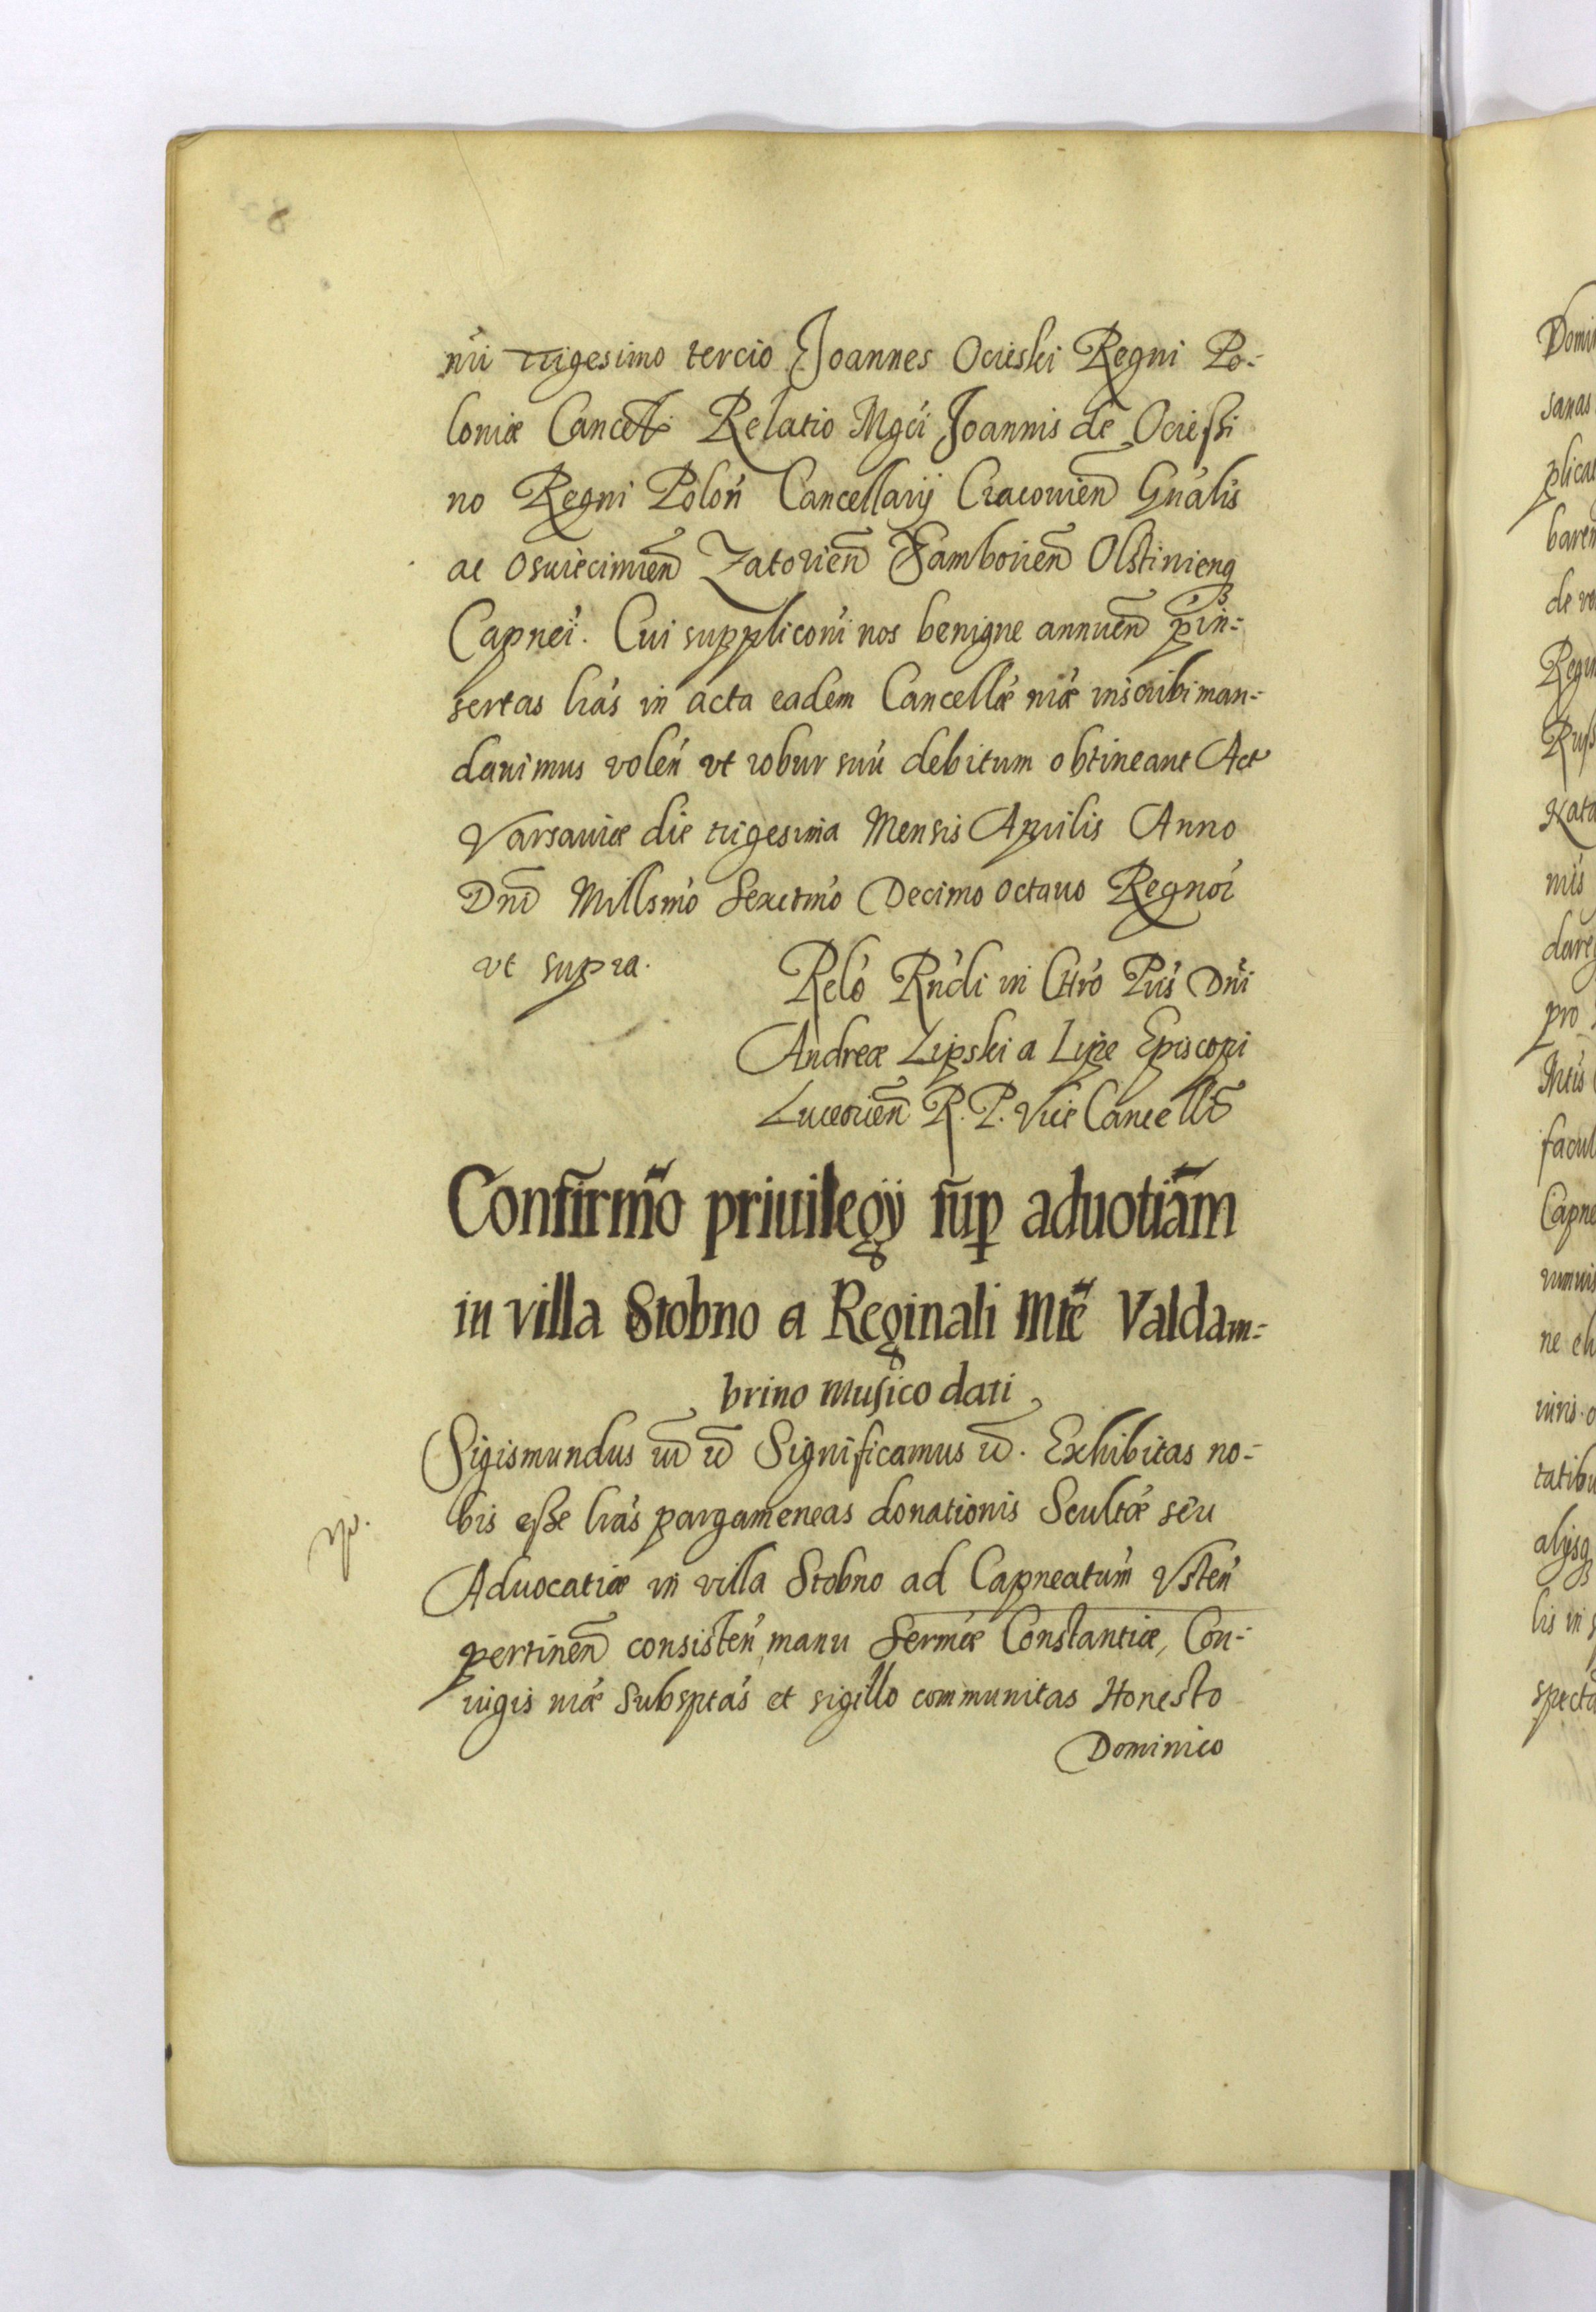 nrı̃ trigesimo tercio Joannes Ocieski Regni Po-
loniæ Cancell Relatio Mgci Joannis de Ociessi
no Regni Polon̄ Cancellarij Cracouien̄ Gn̄alis
ac Osuiecimien̄ Zatorien̄ Samborien̄ Olstinienq
Capnei. Cui supplicoñi nos benigne annuen̄ p̄in-
sertas lrãs in acta eadem Cancellæ nræ inscribi man-
dauimus volen̄ vt robur suū debitum obtineant Act
Varsauiæ die trigesima Mensis Aprilis Anno
Dnī Millsmo Sexctmo Decimo octauo Regnor
vt supra.
Relo Rndi in Chro Pris Dnī
Andreæ Lipski a Lipe Episcopi
Luceorien̄ R. P. Vice Cancellr̄
Confirm̄o priuilegÿ sup aduotiãm
in villa Stobno a Reginali Mte Valdam-
brino Musico dati
Sigismundus III etc̄ Significamus etc̄. Exhibitas no-
bis esse lrãs pargameneas donationis Scultæ seu
Aduocatiæ in villa Stobno ad Capneatum Vsten̄
pertinen̄ consisten̄ manu Sermæ Constantiæ, Con-
iugis nræ Subsptas et sigillo communitas Honesto
Dominico
8